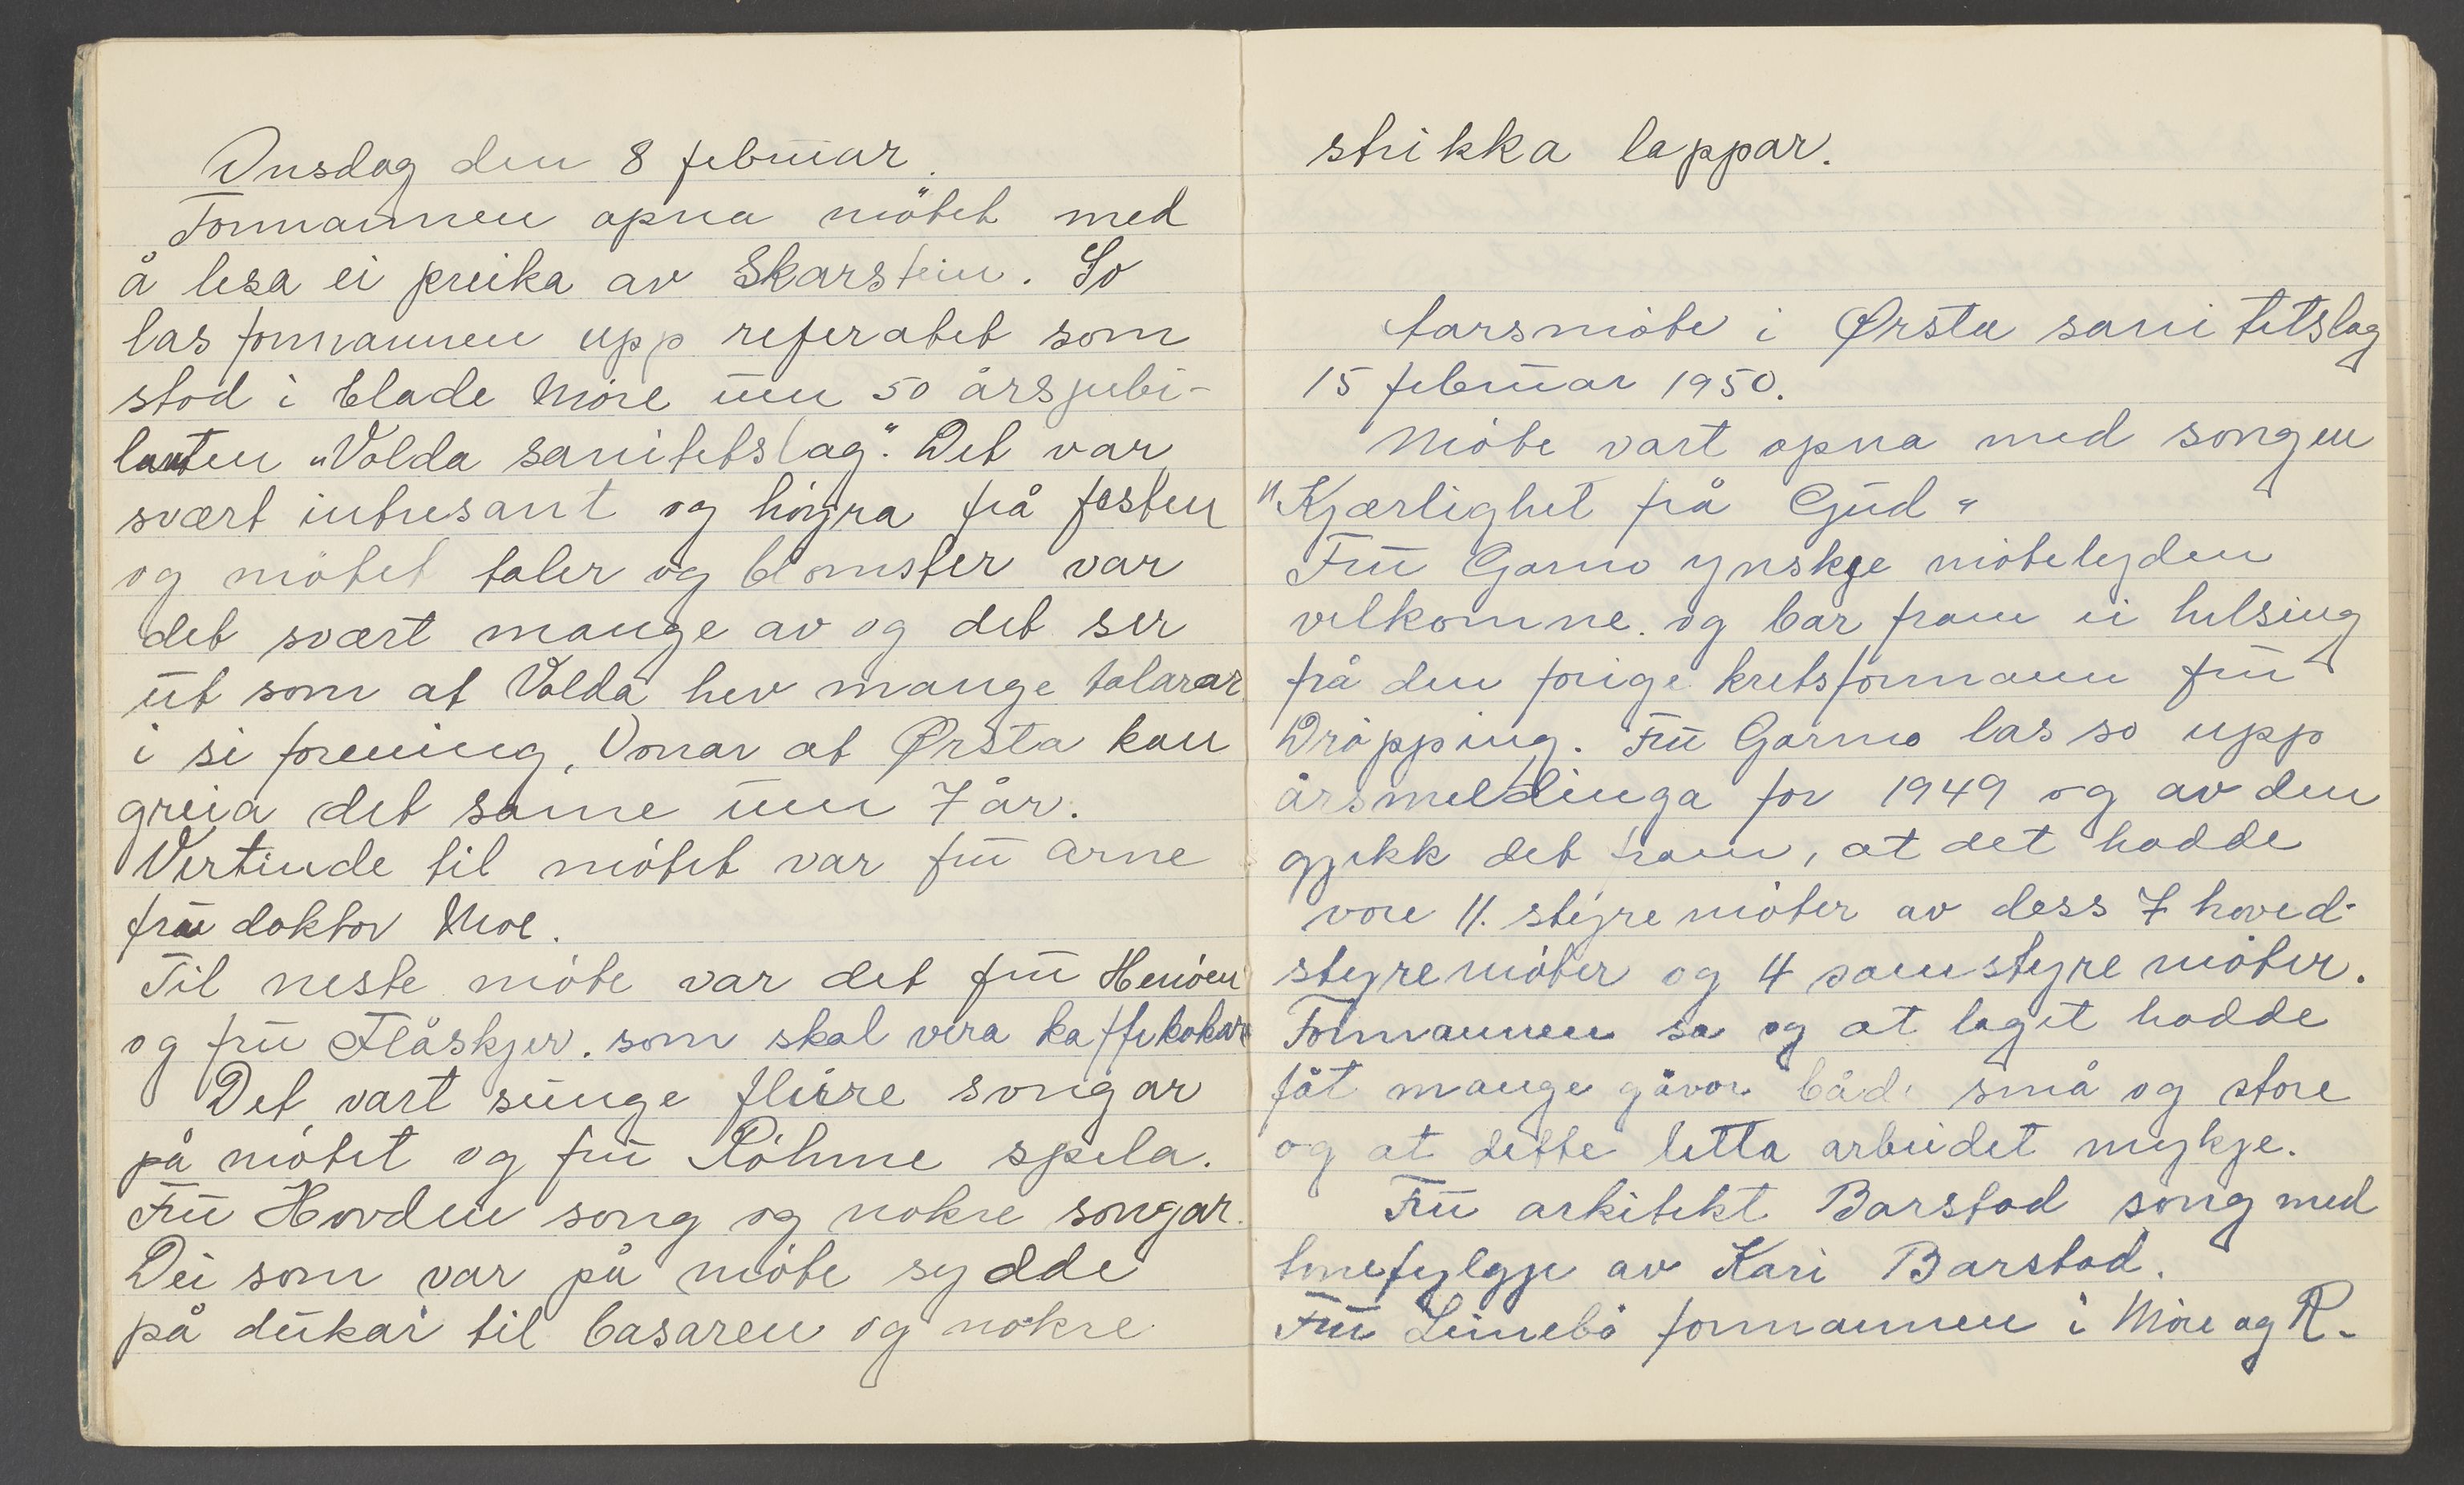 Onsdag den 8 februar.
Formannen opna mötet med
å lesa ei preika av Skarstein. So
las formannen upp referatet som
stod i blade Møre um 50 årsjubi-
lanten "Volda sanitetslag". Det var
svært intresant og höyra frå festen
og mötet taler og blomster var
det svært mange av og det ser
ut som at Volda hev mange talarar
i si forening, Vonar at Ørsta kan
greia det same um 7 år.
Vertinde til mötet var fru Arne
fru doktor Moe.
Til neste möte var det fru
og fru Flåskjer. som skal vera kaffikokare
Det vart sunge fleire songar
på mötet og fru Böhme spela.
Fru Hovden song og nokre songar.
Dei som var på möte sydde
på dukar til basaren og nokre
strikka lappar.
Aarsmöte i Ørsta sanitetslag
15 februar 1950.
Möte vart opna med songen
"Kjærlighet frå Gud"
Fru Garmo ynskje mötelyden
velkomne. og bar fram ei helsing
frå den forige kretsformann fru
Dröpping. Fru Garmo las so upp
årsmeldinga for 1949 og av den
gjekk det fram, at det hadde
vore 11. styremöter av dess 7 hoved-
styremöter og 4 samstyremöter.
Formannen sa og at laget hadde
fåt mange gåvor både små og store
og at dette letta arbeidet mykje.
Fru arkitekt Barstad song med
tonefylgje av Kari Barstad.
Fru Leinebö formannen i Möre og R-